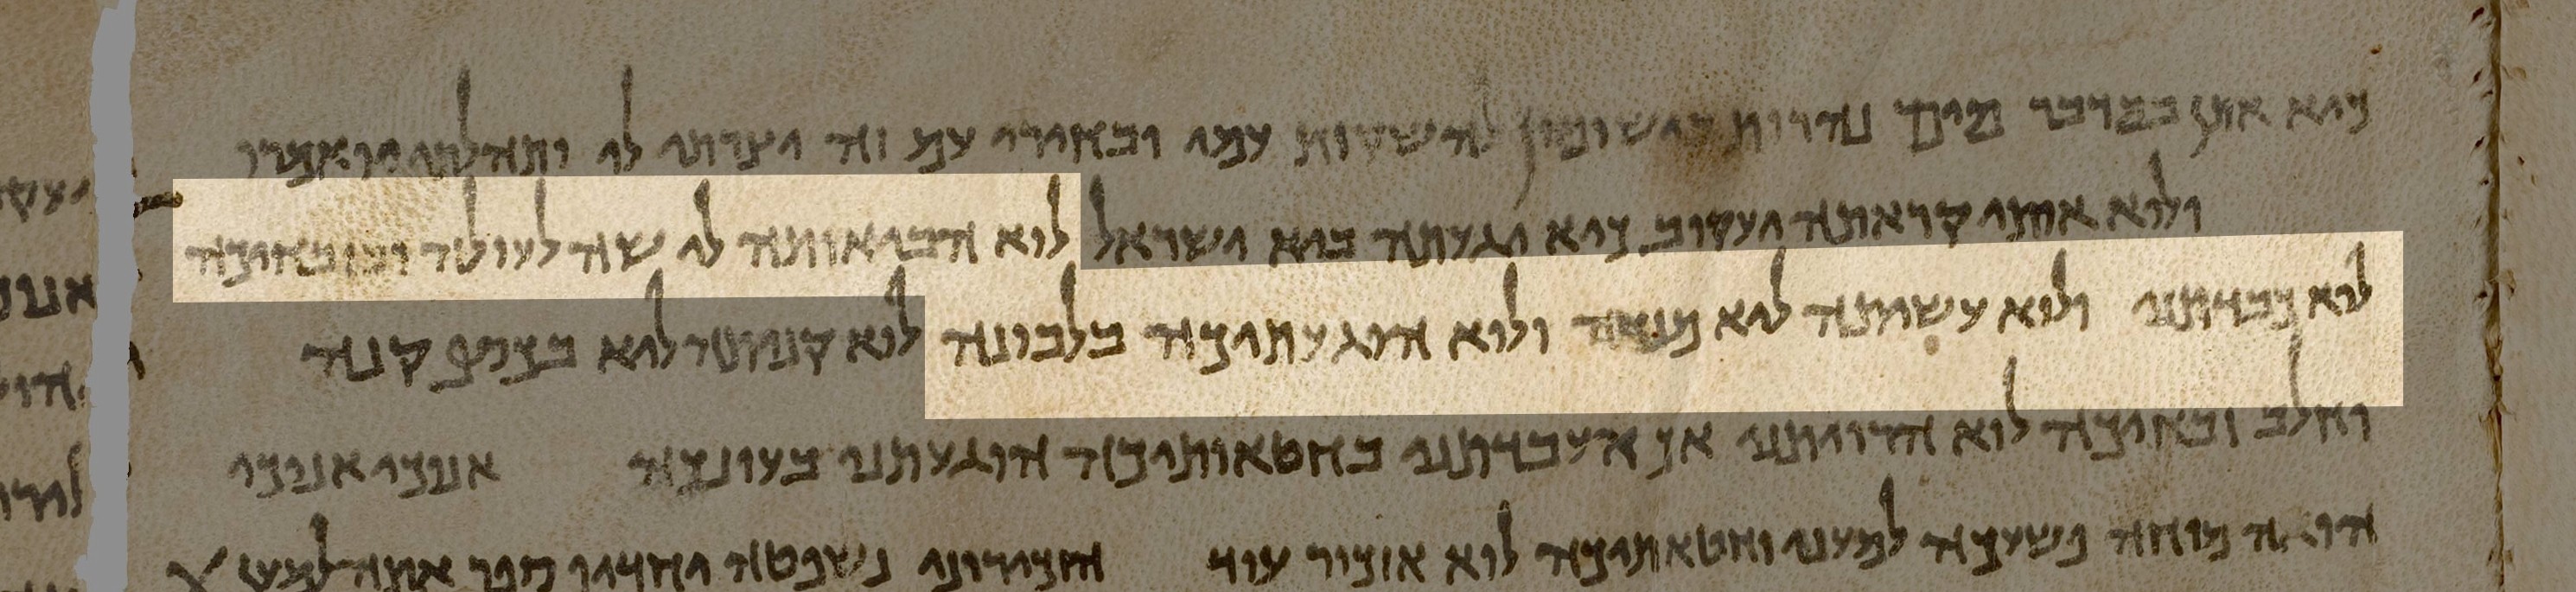 כיא אתן במדבר מים נהרות בישומון להשקות עמי ובחירי עמ זה יצרתי לי ותהלתי יואמרו
ולוא אותי קראתה יעקוב כיא יגעתה ביא ישראל לוא הביאותה לי שה לעולה ובזבחיכה
לוא כבדתני ולוא עשיתה ליא מנחה ולוא הוגעתיכה בלבונה לוא קניתה ליא בכסף קנה
וחלב זבחיכה לוא הרויתני אך העבדתני בחטאותיכה הוגעתני בעוונכה אנוכי אנוכי
הואה מוחה פשעיכה למעני וחטאותיכה לוא אזכור עוד הזכירוני נשפטה יחדיו ספר אתה למען